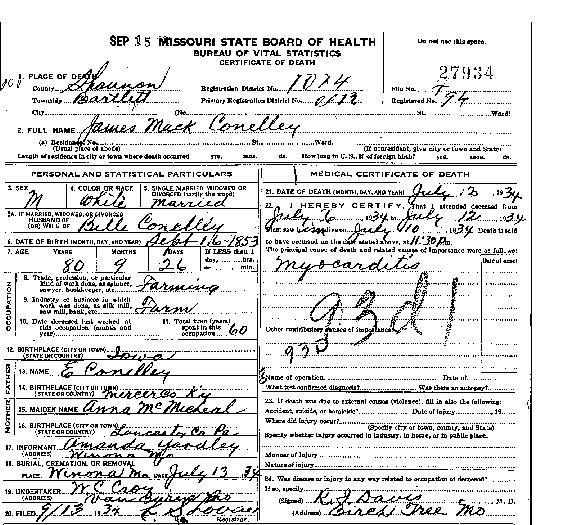 SEP 15 MISSOURI STATE BOARD OF HEALTH
BUREAU OF VITAL STATISTICS
CERTIFICATE OF DEATH
Do not use this space.
27934
1. PLACE OF DEATH
County Shannon Registration District No. 1074 File No.
Township Bartlett Primary Registration District No. Registered No. 94
City (No. St. Ward)
2. FULL NAME James Mack Conelley
(a) Residence, No. St. Ward.
(Usual place of abode) (If nonresident, give city or town and State)
Length of residence in city or town where death occurred yrs. mos. ds. How long in U. S., if of foreign birth? yrs. mos. ds.
PERSONAL AND STATISTICAL PARTICULARS
3. SEX
M
4. COLOR OR RACE
White
5. SINGLE, MARRIED, WIDOWED OR DIVORCED (write the word)
Married
5A. IF MARRIED, WIDOWED, OR DIVORCED
HUSBAND OF
(OR) WIFE OF Belle Conelley
6. DATE OF BIRTH (MONTH, DAY, AND YEAR) Sept 16-1853
7. AGE YEARS MONTHS DAYS If LESS than 1
80 9 26
OCCUPATION
8. Trade, profession, or particular kind of work done, as spinner, sawyer, bookkeeper, etc. Farming
9. Industry or business in which work was done, as silk mill, saw mill, bank, etc. Farm
10. Date deceased last worked at this occupation (month and year)
11. Total time (years) spent in this occupation 60
12. BIRTHPLACE (CITY OR TOWN)
(STATE OR COUNTRY) Iowa
FATHER
13. NAME E Conelley
14. BIRTHPLACE (CITY OR TOWN)
(STATE OR COUNTRY) Mercer Co Ky
MOTHER
15. MAIDEN NAME Anna McMicheal
16. BIRTHPLACE (CITY OR TOWN)
(STATE OR COUNTRY) Loncaster Co Pa
17. INFORMANT Amanda Yardley
(ADDRESS) Winona Mo
18. BURIAL, CREMATION, OR REMOVAL
PLACE Winona Mo DATE July 13 34
19. UNDERTAKER W C
(ADDRESS) Van Buren Mo
20. FILED 9/13 34
Registrar.
MEDICAL CERTIFICATE OF DEATH
21. DATE OF DEATH (MONTH, DAY, AND YEAR) July 12 1934
22. I HEREBY CERTIFY, That I attended deceased from
July 6 1934 to July 12 34
July 10 1934 Death is said
to have occurred on the date stated above, at 11:30 P.m.
The principal cause of death and related causes of importance were as follows:
Date of onset
Myocarditis
93d
Other contributory causes of importance:
93D
Name of operation Date of
What test confirmed diagnosis? Was there an autopsy?
23. If death was due to external causes (violence), fill in also the following:
Accident, suicide, or homicide? Date of injury , 19
Where did injury occur?
(Specify city or town, county, and State)
Specify whether injury occurred in industry, in home, or in public place.
Manner of injury
Nature of injury
24. Was disease or injury in any way related to occupation of deceased?
If so, specify
(Signed) Davis , M. D.
(Address) Birch Tree Mo